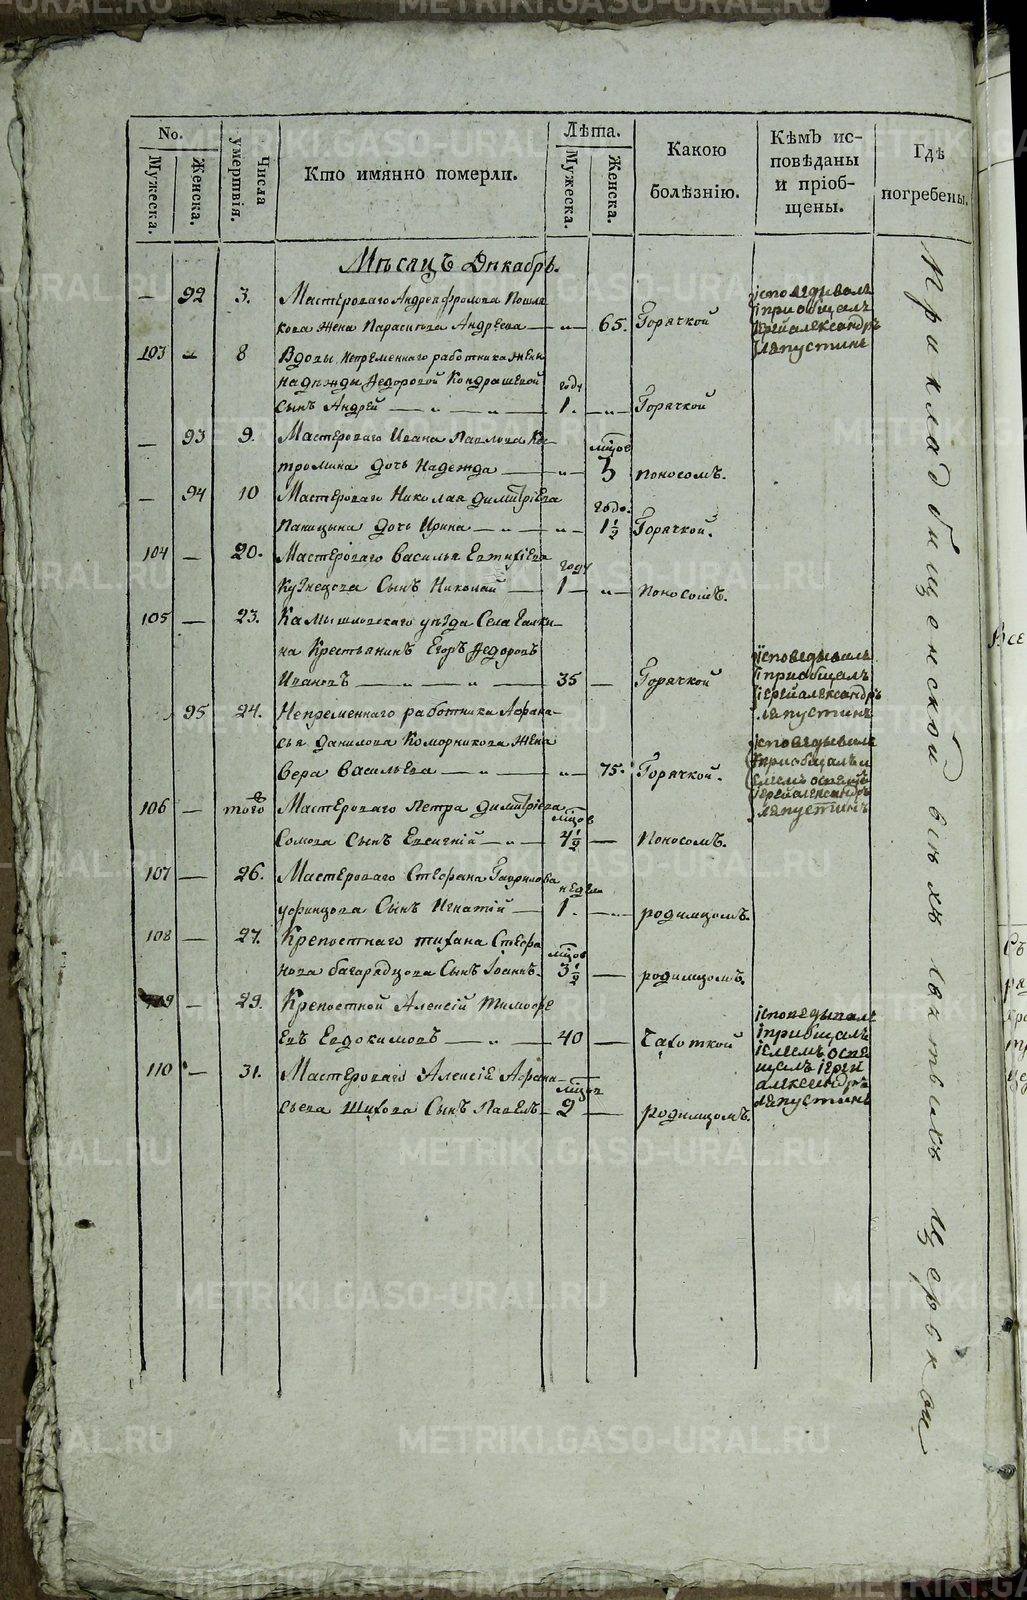 No.
Мужеска.
Женска.
Числа умертвія.
Кто имянно померли.
Лѣта.
Мужеска.
Женска.
Какою болѣзнію.
Кѣмъ исповѣданы и пріобщены.
Гдѣ погребены.
Мѣсяцъ Декабрь.
— 92 3. Мастероваго Андрея Фролова Пошля
кова жена Параскева Андреева — „ — 65. Горячкой
исповѣдывалъ
и приобщалъ
Іерей Александръ
Ляпустинъ
103 — 8 Вдовы непременнаго работника жены
надежды Федоровой Кондрашевой
году
сынъ Андрей — „ — „ — 1. — „ — Горячкой
— 93 9. Мастероваго Ивана Павлова Ко-
мѣцов
тромина дочь Надежда — „ — 3 поносомъ.
— 94 10 Мастероваго Николая Димитріева
годо.
Паницына дочь Ирина — „ — „ — 1½ Горячкой.
104 — 20. Мастероваго Василья Евтифіева
году
Кузнецова Сынъ Николай — 1 — „ — поносомъ.
105 — 23. Камышловскаго уѣзда Села Галки-
на Крестьянинъ Егоръ Федоровъ
Ивановъ — „ — „ — 35 — Горячкой
исповѣдывалъ
и приобщалъ
іерей александръ
ляпустинъ
95 24. Непременнаго работника Афана-
сья Данилова Коморникова жена
Вера Васильева — „ — „ — 75. Горячкой.
исповедывалъ
приобщалъ и
елеемъ
іерей александръ
ляпустинъ
106 — того Мастероваго Петра Димитріева
мѣцов
Сомова Сынъ Евгений — „ — 4½ — поносомъ.
107 — 26. Мастероваго Стефана Гаврилова
недел
уфинцова Сынъ Игнатій — 1. — „ — родимцомъ
108 — 27. Крепостнаго Тихана Стефа
мѣцов
нова багарядцова Сынъ Іоаннъ. 3½ — родимцомъ.
109 — 29. Крепостной Алексій Тимофе
евъ Евдокимовъ — „ — 40 — Чахоткой
исповедывалъ
и приобщалъ
іелеемъ освя
щалъ іерей
александръ
ляпустинъ
110 — 31. Мастероваго Алексіе Афана-
мѣцов
сьева Шихова Сынъ Павелъ — 2 — родимцомъ.
При кладбищенской всѣхъ святыхъ церькви